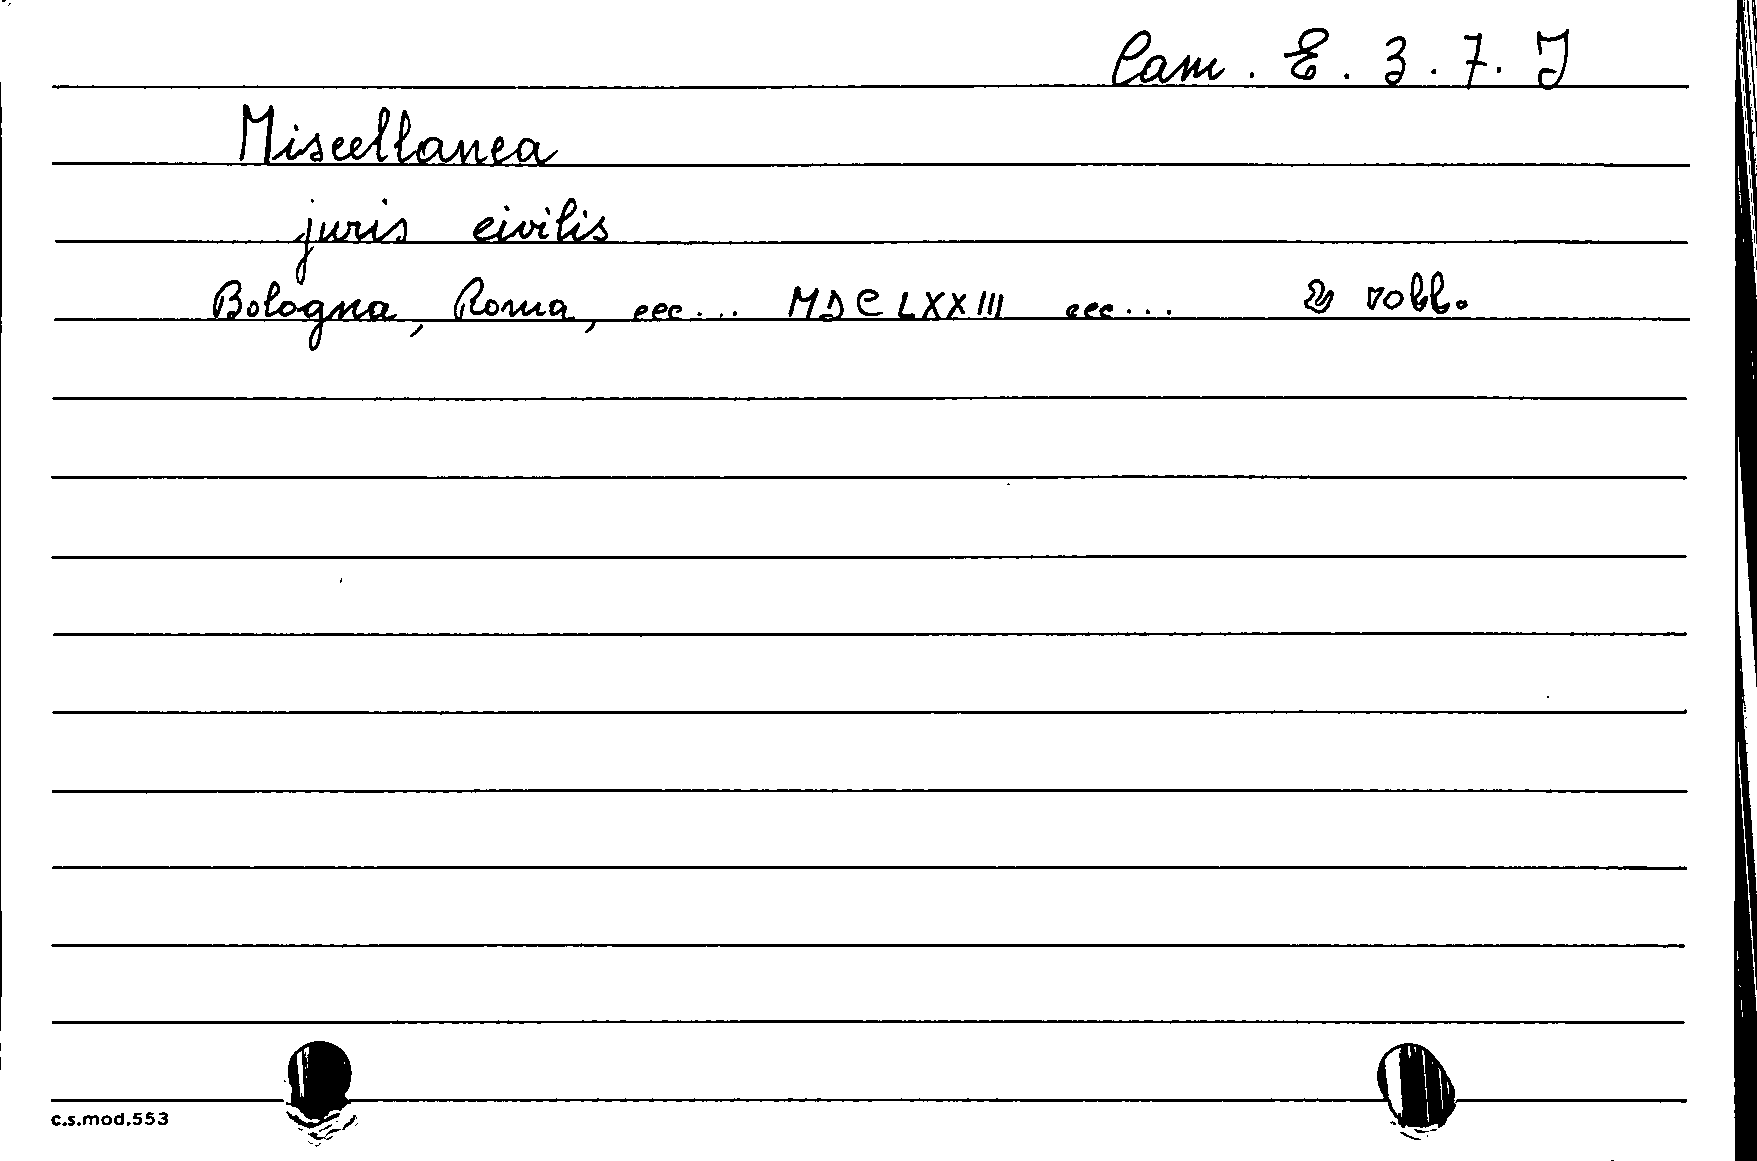 Cam. E. 3. 7. J
Miscellanea
juris civilis
Bologna, Roma, ecc... MDCLXXIII ecc... voll.
c.s.mod.553